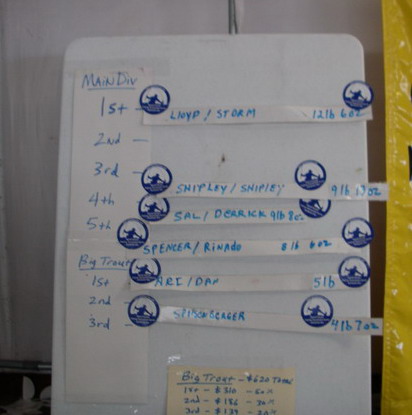 Main Div
1st - Lloyd / Storm 12 lb 6 oz
2nd -
3rd - Shipley / Shipley 9 lb 13 oz
4th - Sal / Derrick 9 lb 8 oz
5th - Spencer / Rinado 8 lb 6 oz
Big Trout
1st - Ari / Dan 5 lb
2nd -
3rd - 4 lb 7 oz
Big Trout - $620 Total
1st - $310 - 50%
2nd - $186 - 30%
3rd - 20%